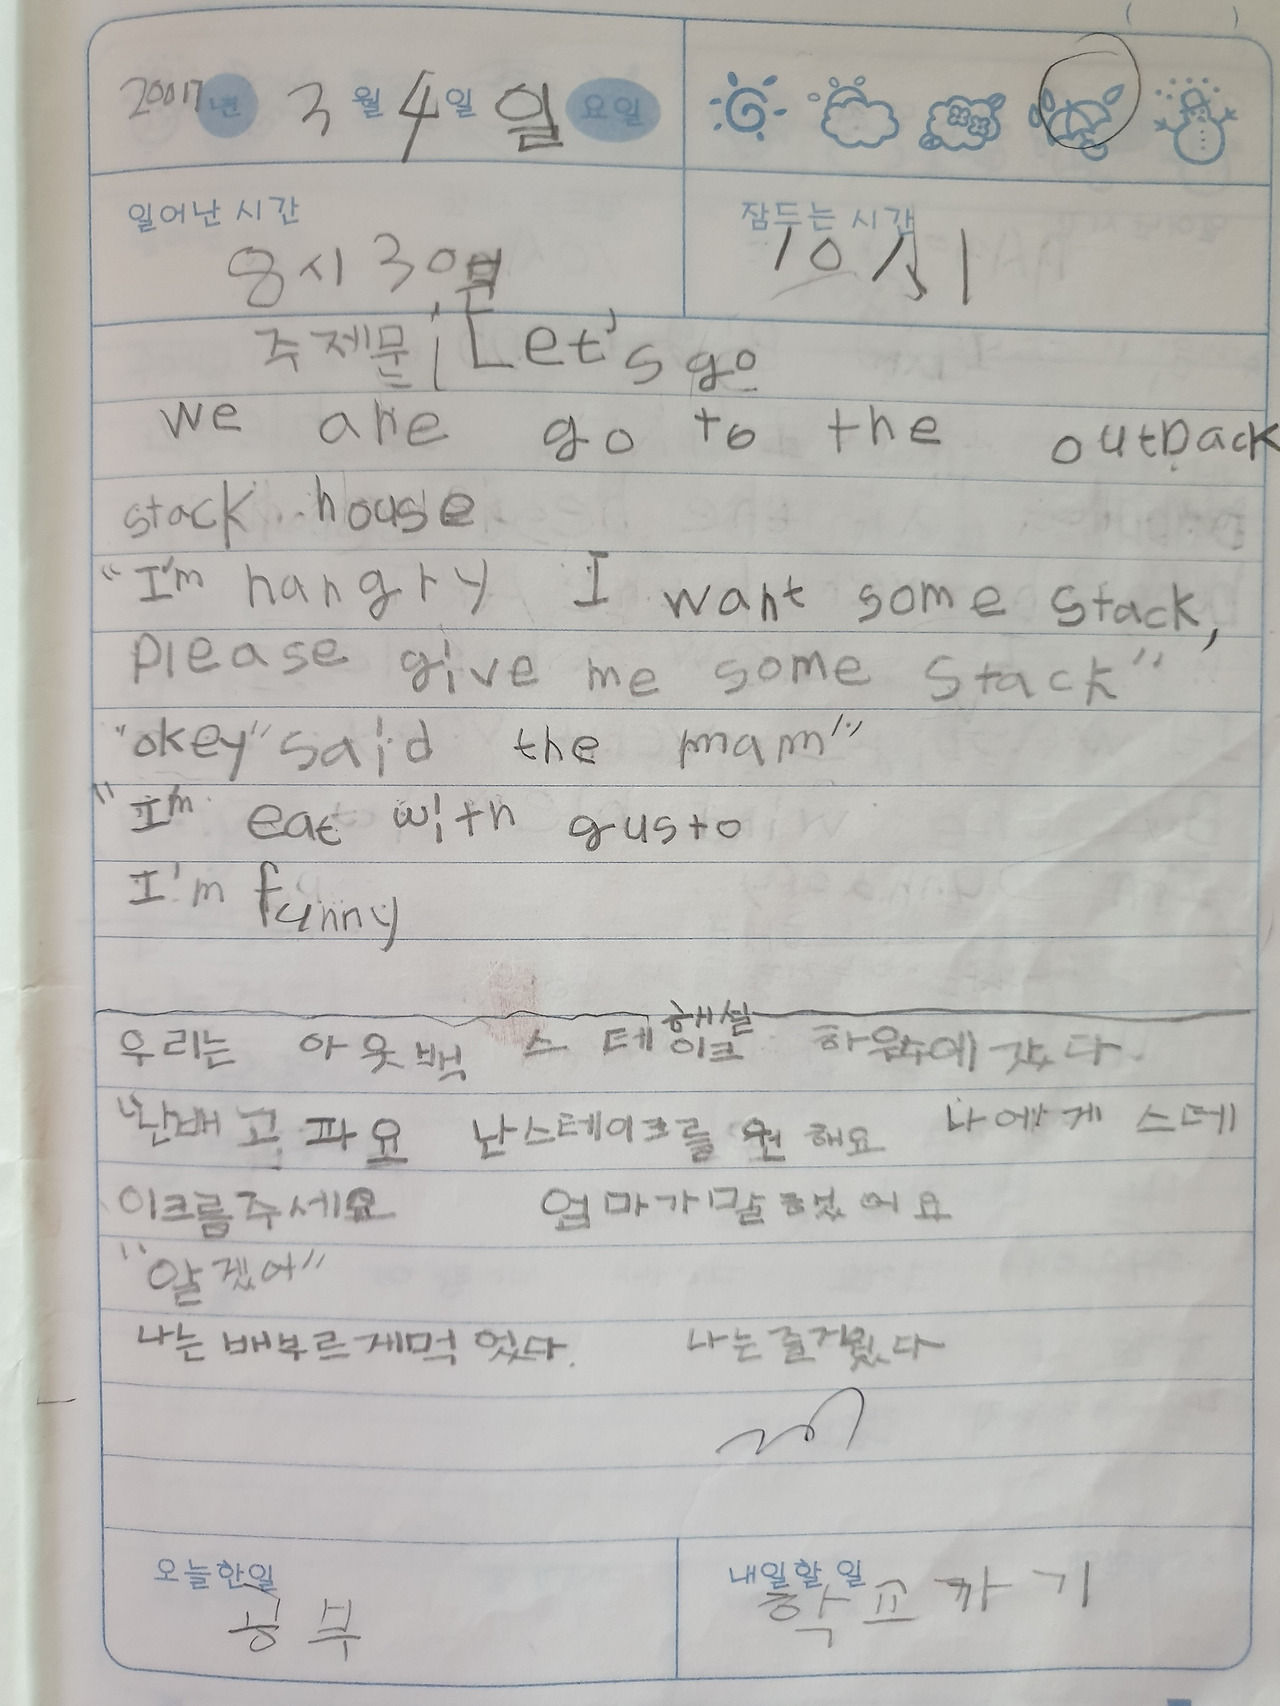 20017년 3월 4일 일요일
일어난 시간
8시 30분
잠드는 시간
10시
주제문; Let's go
we are go to the outback
stack house
"I'm hangry I want some stack,
please give me some stack"
"okey" said the mam"
"I'm eat with gusto
I'm funny
해설
우리는 아웃백 스테이크 하우수에 갔다.
"난배고파요 난스테이크를 원해요 나에게 스테
이크름주세요 엄마가말했어요
"알겠어"
나는배부르게먹었다. 나는즐거웠다
오늘한일
공부
내일할 일
학교가기